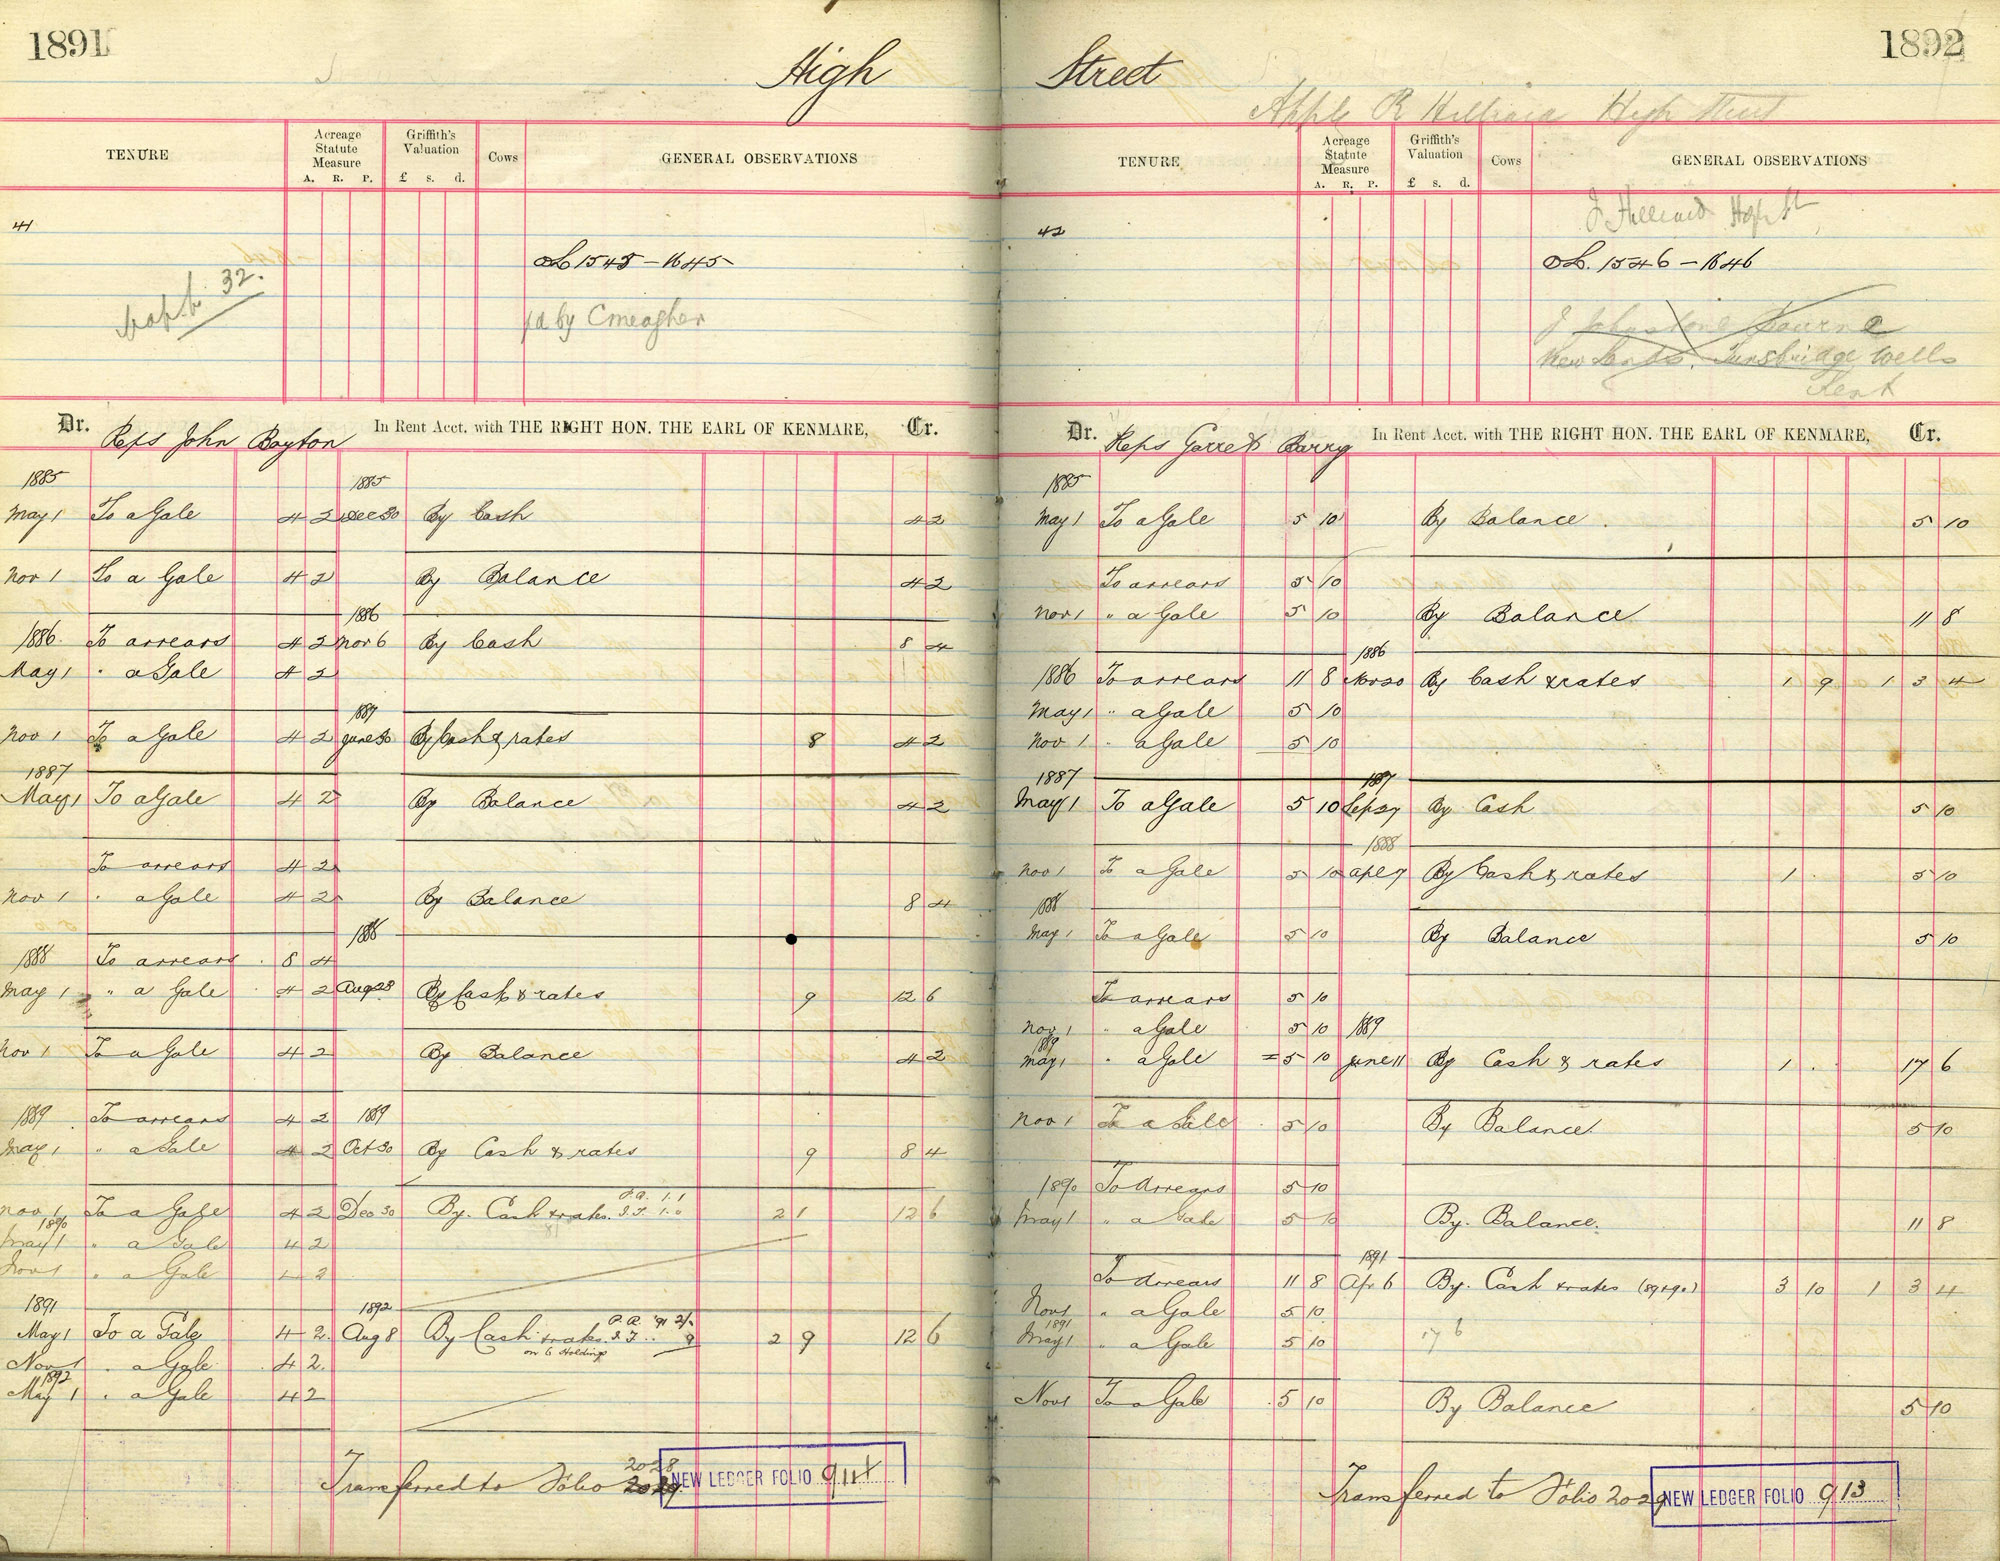 1891
High
TENURE
Acreage Statute Measure
A. R. P.
Griffith's Valuation
£ s. d.
Cows
GENERAL OBSERVATIONS
41
32.
OL 1545 - 1645
pd by C Meagher
Dr. Reps John Boyton In Rent Acct. with THE RIGHT HON. THE EARL OF KENMARE, Cr.
1885 1885
May 1 To a Gale 4 2 Dec 30 By Cash 4 2
Nov 1 To a Gale 4 2 By Balance 4 2
1886
1886 To arrears 4 2 Nov 6 By Cash 8 4
May 1 " a Gale 4 2
1887
Nov 1 To a Gale 4 2 June 30 By Cash & rates 8 4 2
1887
May 1 To a Gale 4 2 By Balance 4 2
To arrears 4 2
Nov 1 " a Gale 4 2 By Balance 8 4
1888
1888 To arrears 8 4
May 1 " a Gale 4 2 Aug 28 By Cash & rates 9 12 6
Nov 1 To a Gale 4 2 By Balance 4 2
1889 To arrears 4 2 1889
May 1 " a Gale 4 2 Oct 30 By Cash & rates 9 8 4
P.R. 1.1
Nov 1 To a Gale 4 2 Dec 30 By. Cash & rates. 1.0 2 1 12 6
1890
May 1 " a Gale 4 2
Nov 1 " a Gale 4 2
1891 1892
P.R. '91 2/.
May 1 To a Gale 4 2. Aug 8 By Cash & rates. 9 2 9 12 6
on 6 Holdings
Nov 1 " a Gale 4 2.
1892
May 1 " a Gale 4 2
2028
Transferred to Folio 2029
NEW LEDGER FOLIO 911
1892
Street
Apple R Hilliard High Street
TENURE
Acreage Statute Measure
A. R. P.
Griffith's Valuation
£ s. d.
Cows
GENERAL OBSERVATIONS
J Hilliard High St
42
OL. 1546 - 1646
J Johnstone Bourne
New Lands. Tunsbridge Wells
Kent
Dr. Reps Garret Barry In Rent Acct. with THE RIGHT HON. THE EARL OF KENMARE, Cr.
1885
May 1 To a Gale 5 10 By Balance . 5 10
To arrears 5 10
Nov 1 " a Gale 5 10 By Balance 11 8
1886
1886 To arrears 11 8 Nov 20 By Cash & rates 1 9 1 3 4
May 1 " a Gale 5 10
Nov 1 " a Gale 5 10
1887 1887
May 1 To a Gale 5 10 Sep 27 By Cash 5 10
1888
Nov 1 To a Gale 5 10 Apl 27 By Cash & rates 1 . 5 10
1888
May 1 To a Gale 5 10 By Balance 5 10
To arrears 5 10
Nov 1 " a Gale 5 10 1889
1889
May 1 " a Gale 5 10 June 11 By Cash & rates 1 . 17 6
Nov 1 To a Gale 5 10 By Balance. 5 10
1890 To Arrears 5 10
May 1 " a Gale 5 10 By. Balance. 11 8
1891
To Arrears 11 8 Apr 6 By. Cash & rates (89 & 90) 3 10 1 3 4
Nov 1 " a Gale 5 10
1891
May 1 " a Gale 5 10 17 6
Nov 1 To a Gale 5 10 By Balance 5 10
Transferred to Folio 2029
NEW LEDGER FOLIO 913